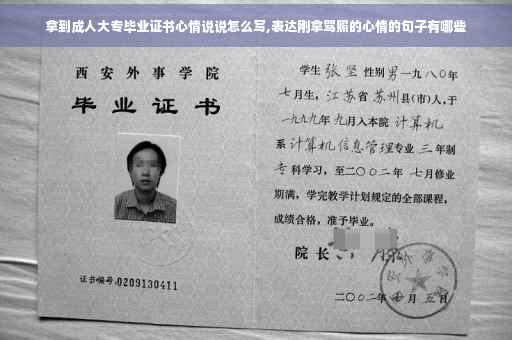 拿到成人大专毕业证书心情说说怎么写,表达刚拿驾照的心情的句子有哪些
西安外事学院
毕业证书
证书编号:0209130411
学生 张坚 性别 男 一九八〇年
七月生，江苏省 苏州 县(市)人,于
一九九九年 九月入本院 计算机
系 计算机信息管理 专业 三 年制
专 科学习，至二〇〇二年 七月修业
期满，学完教学计划规定的全部课程，
成绩合格，准予毕业。
院长
二〇〇二年 月 五日